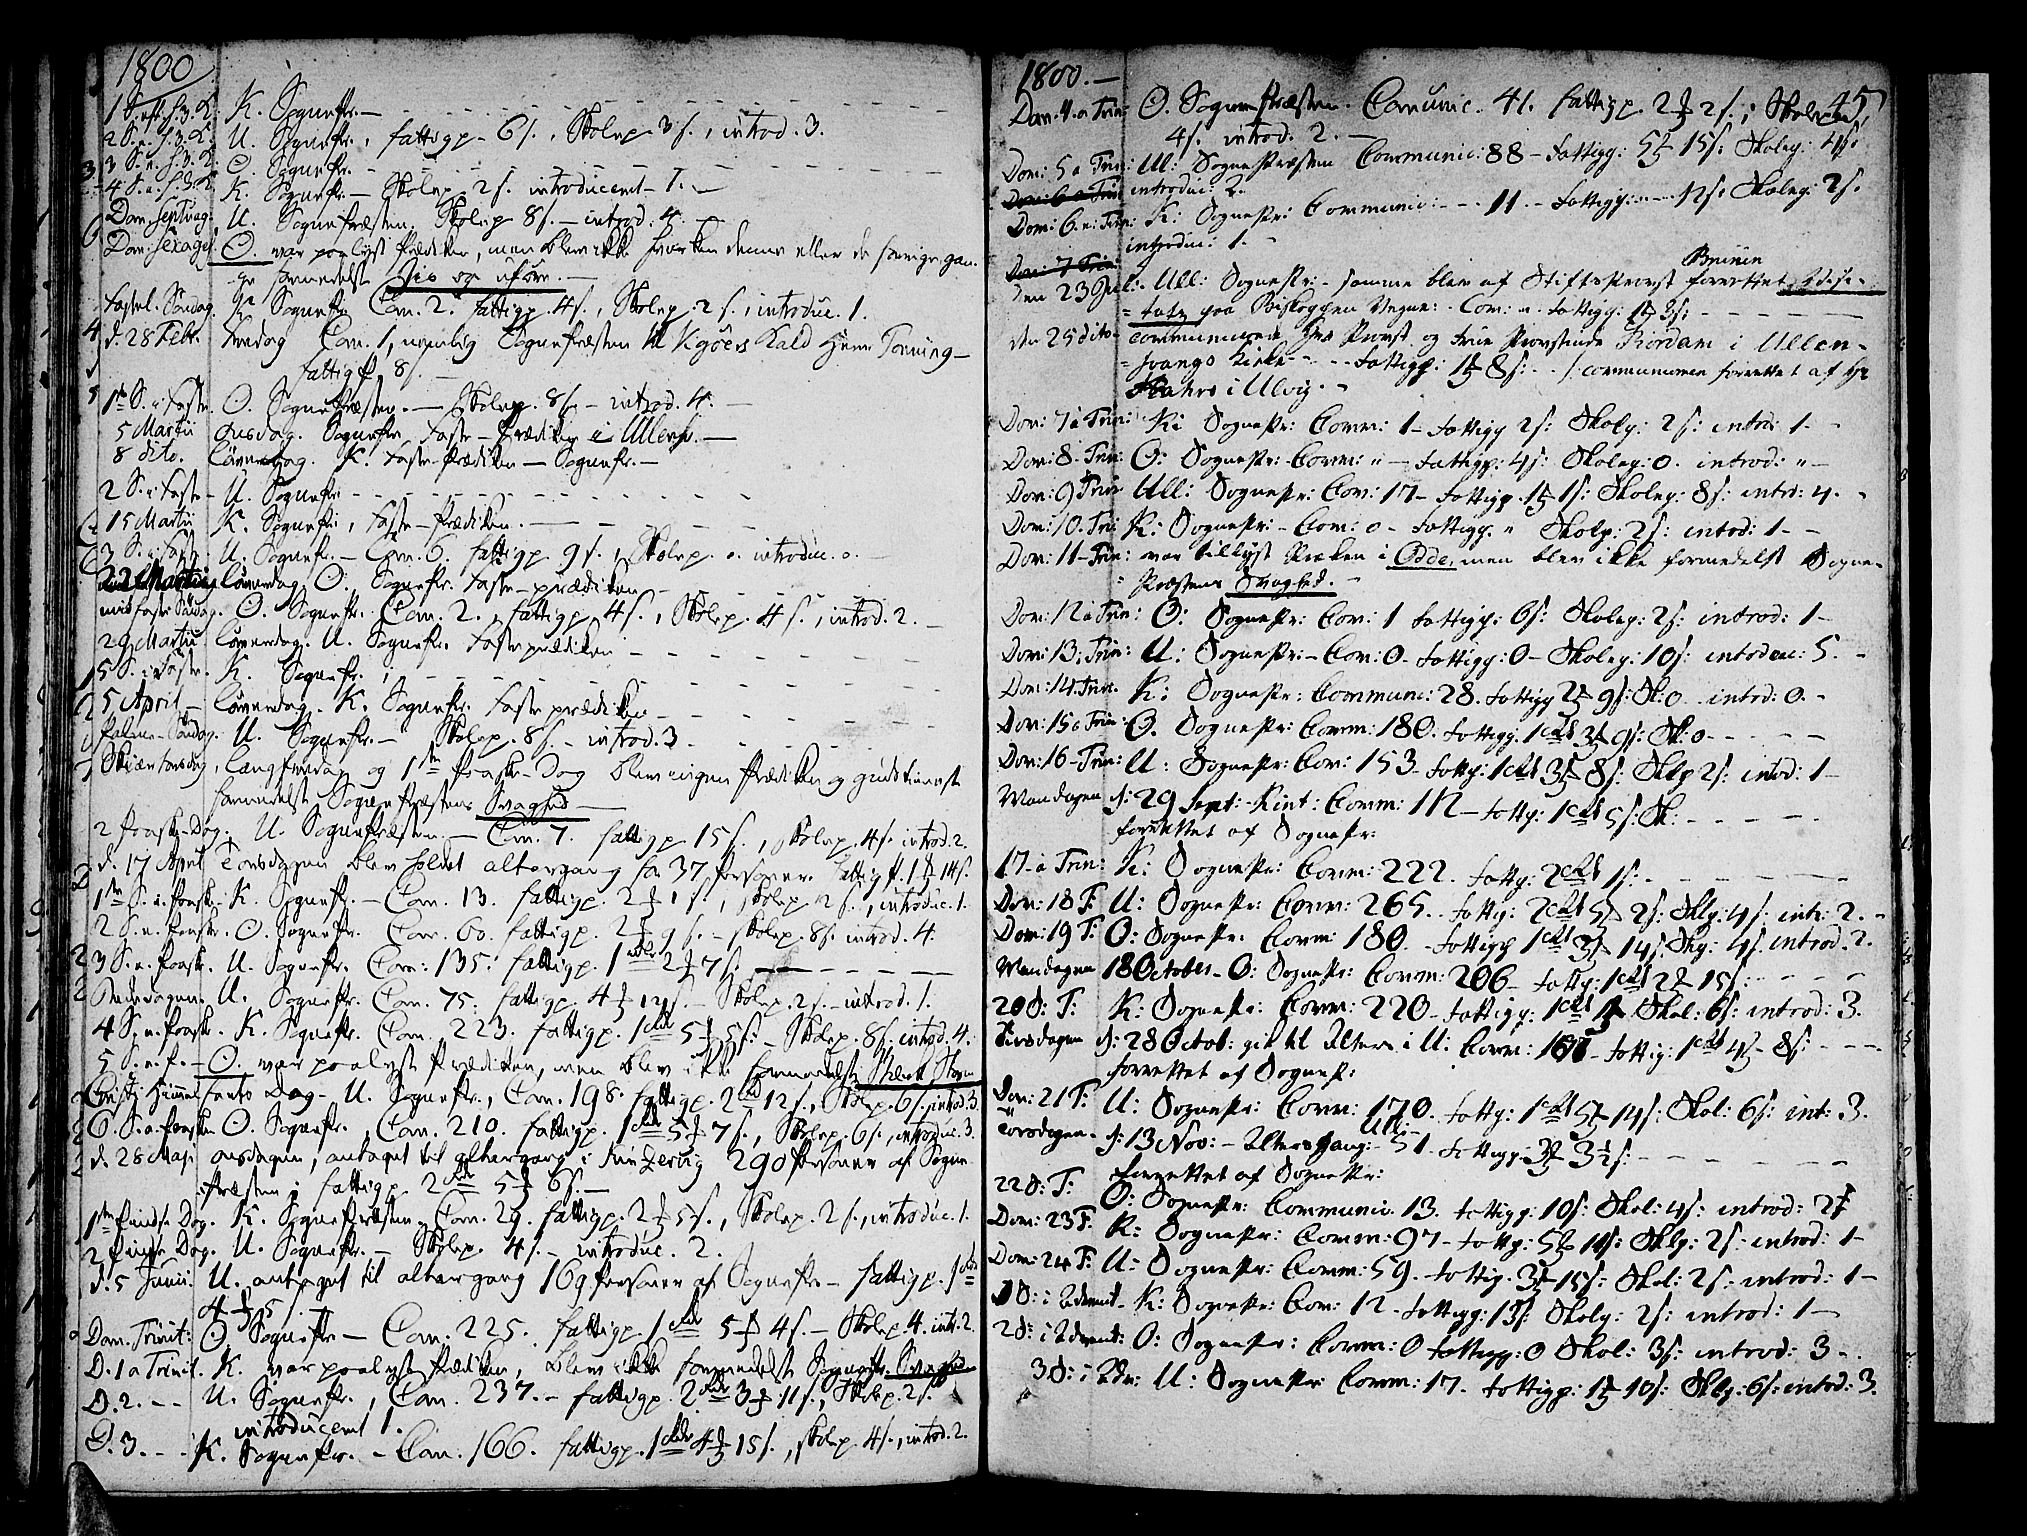 1800
1 S. e. h. 3. K. K. Sognepr. —
2 S. e. h. 3. K. U. Sognepr., fattigp. 6 s., Skolep. 3 s., introd. 3.
3 S. e. h. 3. K. O. Sognepr. —
4 S. e. h. 3. K. K. Sognepr. — Skolep. 2 s. introduceret 1. —
Dom. Septuag: U. Sognepræsten. Skolep. 8 s. — introd. 4. —
Dom: Sexages. O. var paalyst Prædiken, men blev ikke hverken denne eller de forrige gan-
ge formedelst
Fastel. Søndag. K. Sognepr. Com. 2. fattigp. 4 s., Skolep. 2 s., introduc. 1.
d. 28 Febr. Fredag Com. 1, nemlig Sognepræsten til Kald Herr
fattigp. 8 s.
1te S. i Faste. O. Sognepræsten. — Skolep. 8 s. — introd. 4. —
5 Martii onsdag. Sognepr. Faste-Prædiken i Ullensv. —
8 dito. Løverdag. K. Faste-Prædiken — Sognepr. —
2 S. i Faste — U. Sognepr.
15 Martii K. Sognepr., Faste-Prædiken. —
3 S. i Faste. U. Sognepr. — Com. 6. fattigp. 9 s., Skolep. 0. introduc. 0. —
22 Martii Løverdag. O. Sognepr. Faste-prædiken
mid faste Søndag. O. Sognepr. Com. 2., fattigp. 4 s., Skolep. 4 s., introd. 2. —
29 Martii Løverdag. U. Sognepr. Fasteprædiken
5 S. i Faste. K. Sognepr.,
5 April — Løverdag. K. Sognepr. Fasteprædiken
Palme-Søndag. U. Sognepr. — Skolep. 8 s. — introd. 3
Skiærtorsdag, Langfredag og 1ste Paaske-Dag blev ingen Prædiken og gudstieneste
formedelst Sognepræstens Svaghed —
2 Paaske-Dag. U. Sognepræsten. — Com. 7. fattigp. 15 s., Skolep. 4 s. introd. 2.
d. 17 April Torsdagen blev holdet altergang for 37 personer fattigp. 1 ꝑ 14 s.
1ste S. e. Paaske. K. Sognepr. — Com. 13. fattigp. 2 ꝑ 1 s., Skolep. 2 s., introduc. 1.
2 S. e. Paaske. O. Sognepr. Com. 60. fattigp. 2 ꝑ 9 s. — Skolep. 8 s. introd. 4.
3 S. e. Paask. U. Sognepr. Com: 135. fattigp. 1 rdlr 2 ꝑ 7 s. —
Bededagen. U. Sognepr. Com. 75. fattigp. 4 ꝑ 12 s. — Skolep. 2 s. — introd. 1.
4 S. e. Paask. K. Sognepr. Com. 223. fattigp. 1 rdlr 5 ꝑ 5 s: — Skolep. 8 s. introd. 4.
5 S. e. P. — O. var paalyst Prædiken, men blev ikke formedelst Stærk Storm
Christi Himmelfarts Dag — U. Sognepr., Com. 198. fattigp. 2 rd 12 s., Skolep. 6 s., introd. 3.
6 S. e. Paasken O. Sognepr., Com. 210. fattigp. 1 rdlr 5 ꝑ 7 s., Skolep. 6 s., introduc. 3.
d. 28 Maj. onsdagen, antaget til altergang i Kinzervig 290 personer af Sogne-
præsten; fattigp. 2 rdlr 5 ꝑ 6 s. —
1ste Pindse Dag. K. Sognepræsten. Com. 29. fattigp. 2 ꝑ 5 s., Skolep. 2 s., introduc. 1.
2 Pindse Dag. U. Sognepr. — Skolep. 4 s. — introduc. 2.
d. 5 Junii: U. antaget til altergang 169 personer af Sognepr. — fattigp. 1 rdlr
4 ꝑ 5 s.
Dom. Trinit: O. Sognepr. — Com. 225. fattigp. 1 rdlr 5 ꝑ 4 s. — Skolep. 4. intr. 2.
D. 1 a Trinit. K. var paalyst Prædiken, blev ikke formedelst Sognepr. Svaghed
D. 2. — — U. Sognepr., Com. 237. — fattigp. 2 rdlr 3 ꝑ 11 s., Skolep. 2 s.
introduceret 1.
D. 3. — — K. Sognepr. — Com. 166. fattigp. 1 rdlr 4 ꝑ 15 s., skolep. 4 s., introd. 2.
1800. —
45
Dom. 4. a Trin: O. Sognepræsten. Communic. 41. fattigp. 2 ꝑ 2 s., Skolep.
4 s. introd. 2. —
Dom: 5 a Trin: Ul: Sognepræsten Communic: 88 — Fattigp: 5 ꝑ 15 s: Skolep: 4 s:
Dom: 6 a Trin introduc: 2.
Dom: 6. a. Trin: K: Sognepr: Communic: — — 11. — Fattigp: — — 12 s: Skolep: 2 s.
introduc: 1. —
Dom: 7 Trin:
den 23 Jul: Ull: Sognepr: — samme blev af Stiftsprovst Bruun forrettet
paa Biskoppens Vegne: — Com: — Fattigp: 1 ꝑ 8 s:
den 25 dito — communicerede Hr Provst og Frue Provstinde Rordam i Ullen-
svangs Kirke — — — Fattigp: 1 ꝑ 8 s: — communionen forrettet af Hr
i Ulvig. —
Dom: 7 a Trin: K: Sognepr: Comm: 1 — Fattigp 2 s: Skolep: 2 s: introd: 1 —
Dom: 8. Trin: O: Sognepr: Comm: " — Fattigp: 4 s: Skolep: 0. introd: " —
Dom: 9 Trin Ull: Sognepr: Com: 17 — Fattigp. 1 ꝑ 1 s: Skolep: 8 s: introd: 4. —
Dom: 10. Tri: K: Sognepr: — Com: 0 — Fattigp. " Skolp: 2 s: introd: 1 —
Dom: 11 — Trin: var tillyst Præken i Odde, men blev ikke formedelst Sogne-
Præstens Svaghed. —
Dom: 12 a Trin: O: Sognepr: Com: 1 Fattigp: 6 s: Skolep: 2 s: introd: 1 —
Dom: 13: Trin: U: Sognepr: — Com: 0 — Fattigp: 0 — Skolep: 10 s: introduc: 5. —
Dom: 14. Trin. K: Sognepr: Commun: 28. Fattigp 2 ꝑ 9 s: Sk: 0 introd: 0. —
Dom: 15 a Trin. O. Sognepr: Comm: 180. Fattigp. 1 rdl 3 ꝑ 9 s: Sk: 0 — — —
Dom: 16 — Trin: U: Sognepr: Com: 153. Fattig: 1 rdl 3 ꝑ 8 s: Sklp 2 s: introd: 1 —
Mandagen d: 29 Sept: — Kint: Comm: 112 — Fattig: 1 rdl 5 s: Sk: — — —
forrettet af Sognepr:
17 — a Trin: K: Sognepr: Comm: 222. Fattig: 2 rdl 1 s:
Dom: 18 T: U: Sognepr: Comm: 265. Fattig: 2 rdl 5 ꝑ 2 s: Sklp: 4 s: intr: 2. —
Dom: 19 T: O: Sognepr: Comm: 180. — Fattigp 1 rdl 3 ꝑ 14 s: Skp: 4 s. introd. 2.
Mandagen 18 October — O: Sognepr: Comm: 206 — Fattig: 1 rdl 2 ꝑ 15 s:
20 S: T: K: Sognepr: Comm: 220 — Fattigp: 1 rdl ꝑ Skol: 6 s: introd: 3.
Tirsdagen d: 28 Octob: gik til Alters i U: Comm: — Fattig: 1 rdl 4 ꝑ — 8 s: — — —
forrettet af Sognepr:
Dom: 21 T: U: Sognepr: Comm: 170. Fattig: 1 rdl 5 ꝑ 14 s: Skol: 6 s: int: 3.
Torsdagen — d: 13 Nov: — Altergang: Ull: 51. Fattigp. 3 ꝑ 3½ s:
forrettet af Sognepr:
22 S: T: O: Sognepr: Communic. 13. Fattigp: 10 s: Skol: 4 s: introd: 2
Dom: 23 T: K: Sognepr: Comm: 97 — Fattig: 5 ꝑ 10 s: Sklp: 2 s: introd: 1 —
Dom: 24 T: U: Sognepr: Comm: 59. — Fattig. 3 ꝑ 15 s: Skol: 2 s: introd: 1 —
1 S: i Advent — K: Sognepr: Com: 12 — Fattigp: 13 s: Skolp: 2 s: introd: 1 —
2 S: i Advent: O: Sognepr: Comm: 0 Fattigp: 0 Skol: 3 s: introd: 3 —
3 S: i Adv: U: Sognepr: Comm: 17. Fattigp: 1 ꝑ 10 s: Sklp: 6 s: introd: 3.